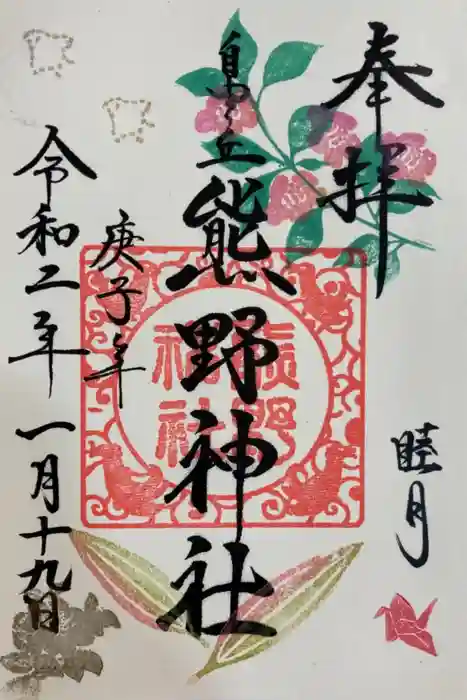 奉拝
睦月
自由が丘
熊野神社
熊野神社
庚子年
令和二年 一月十九日